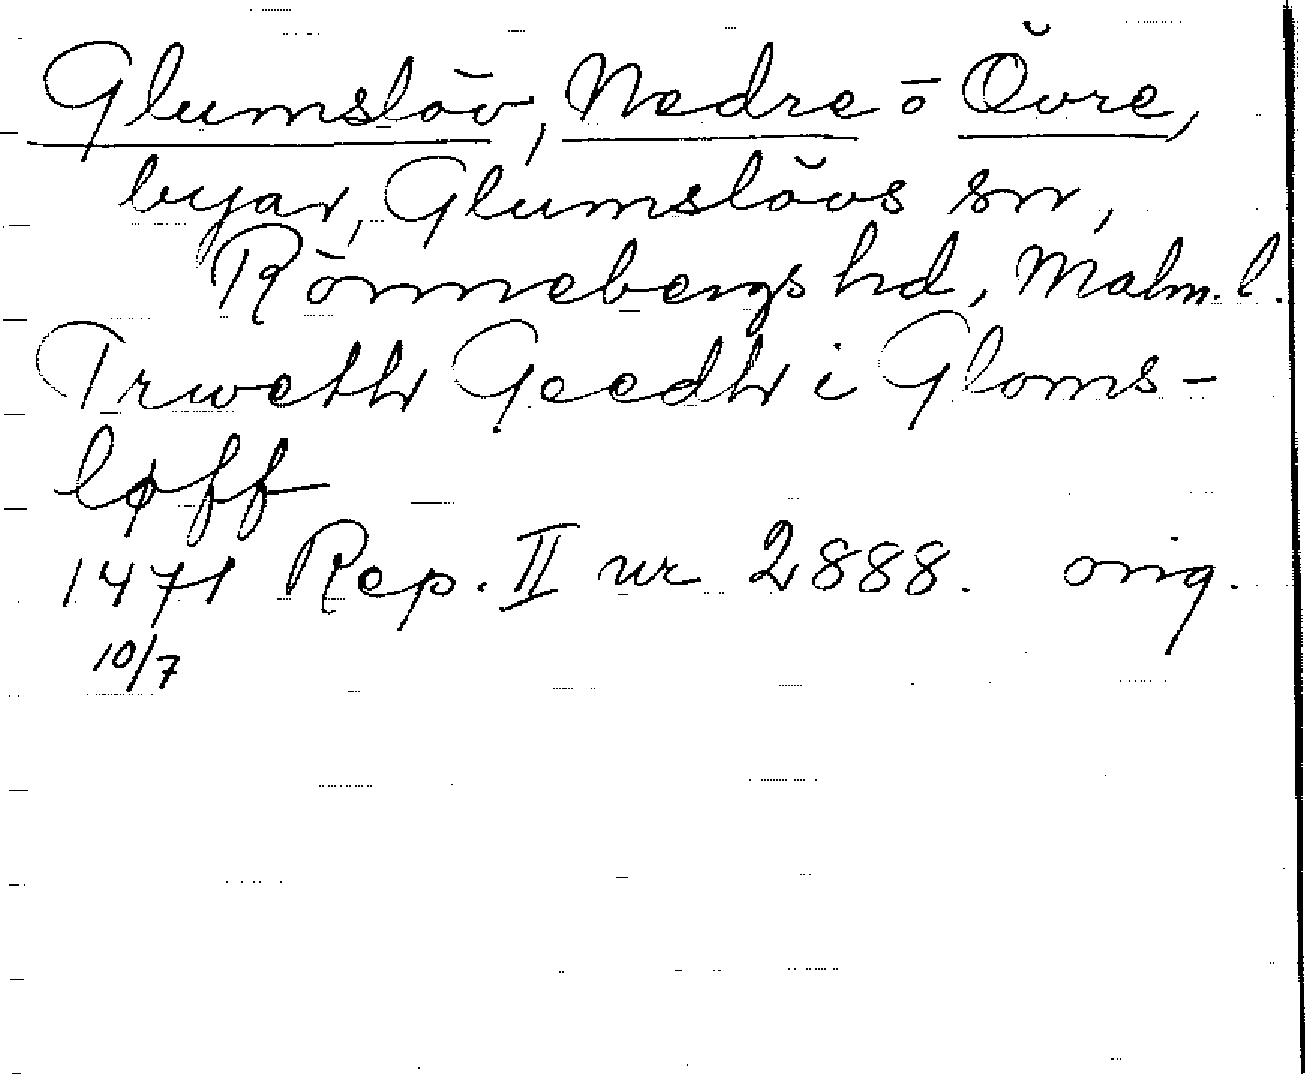 Glumslöv, Nedre o Övre,
byar, Glumslövs sn,
Rönnebergs hd, Malm. l.
Trwethr Geedhr i Gloms-
løff
1471 Rep. II nr 2888. orig.
10/7